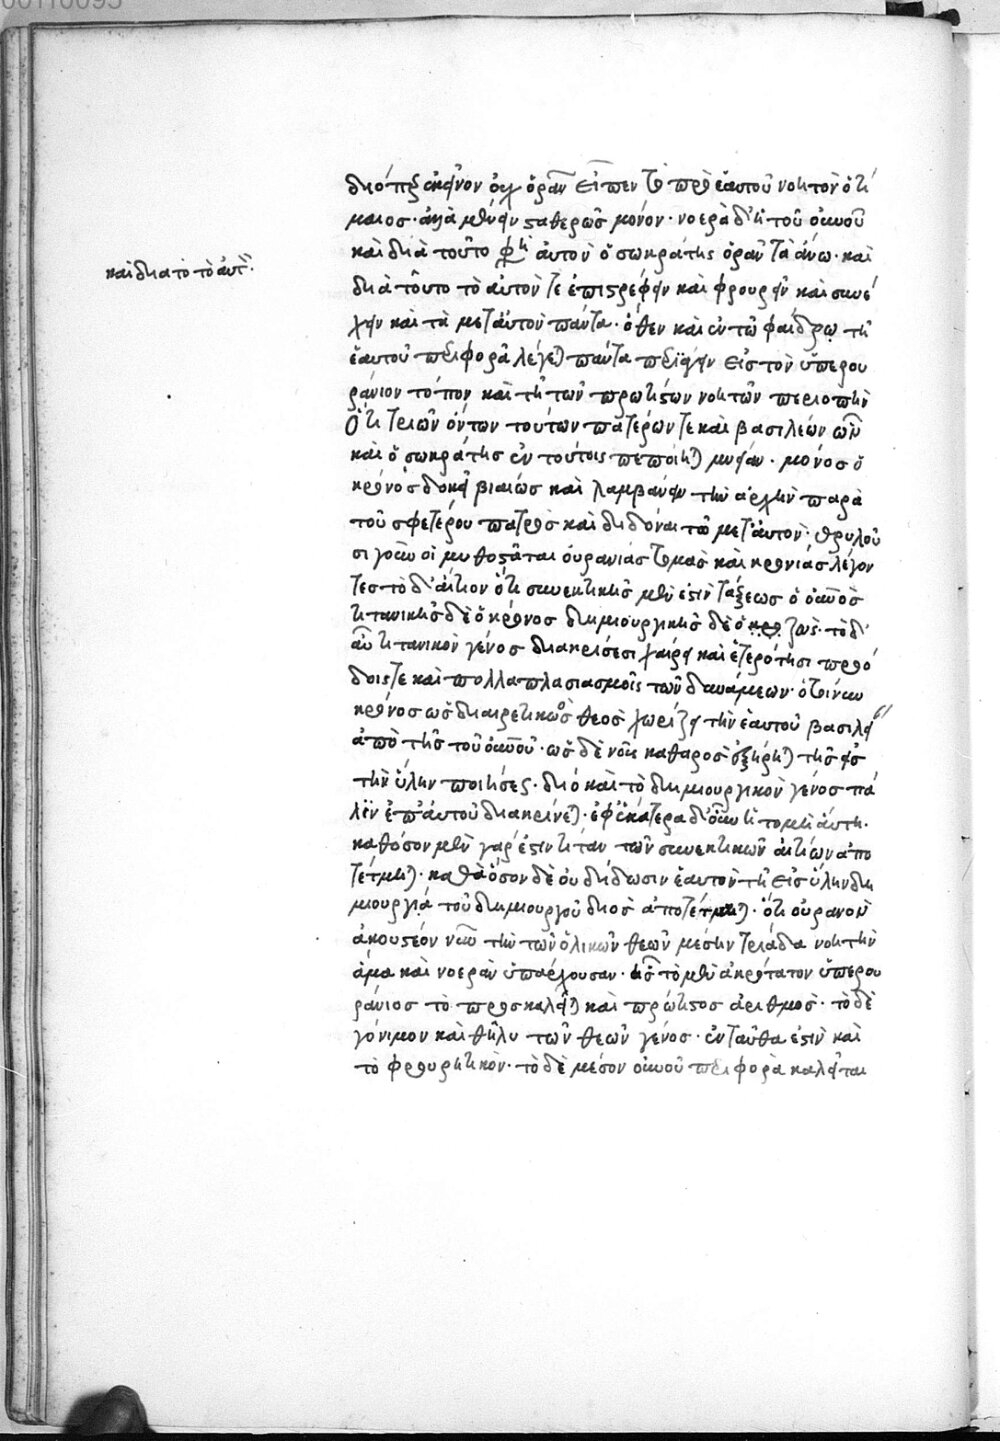 διόπερ ἐκεῖνον οὐχ ὁρᾶν εἶπεν τὸ πρὸ ἑαυτοῦ νοητὸν ὁ τί
μαιος· ἀλλὰ μένειν σταθερῶς μόνον· νοερὰ δ' ἡ τοῦ οὐρανοῦ
καὶ διὰ τοῦτο φησὶ αὐτὸν ὁ σωκράτης ὁρᾶν τὰ ἄνω· καὶ
καὶ δια τὸ τὸ αὐτ
διὰ τοῦτο τὸ αὐτὸν τε ἐπιστρέφειν καὶ φρουρεῖν καὶ συνέ
χειν καὶ τὰ μετ' αὐτὸν πάντα· ὅθεν καὶ ἐν τῷ φαίδρῳ τῇ
ἑαυτοῦ περιφορᾷ λέγεται πάντα περιάγειν εἰς τὸν ὑπερου
ράνιον τόπον καὶ τὴν τῶν πρωτίστων νοητῶν περιοπὴν
Ὅτι τριῶν ὄντων τούτων πατέρων τε καὶ βασιλέων ὧν
καὶ ὁ σωκράτης ἐν τούτοις πεποίηται μνείαν· μόνος ὁ
κρόνος δοκεῖ βιαίως καὶ λαμβάνειν τὴν ἀρχὴν παρὰ
τοῦ σφετέρου πατρὸς καὶ διδόναι τῷ μετ' αὐτὸν· θρυλοῦ
σι γοῦν οἱ μυθοπλάσται οὐρανίας τομὰς καὶ κρονίας λέγον
τες τὸ δ' αἴτιον ὅτι συνεκτικῆς μέν ἐστιν τάξεως ὁ οὐρανὸς
τιτανικῆς δὲ ὁ κρόνος δημιουργικῆς δὲ ὁ ζεύς· τὸ δ'
αὖ τιτανικὸν γένος διακρίσεσι χαίρει καὶ ἑτερότησι προό
δοις τε καὶ πολλαπλασιασμοῖς τῶν δυνάμεων· ὁ τοίνυν
κρόνος ὡς διαιρετικὸς θεὸς χωρίζει τὴν ἑαυτοῦ βασιλεί
ἀπὸ τῆς τοῦ οὐρανοῦ· ὡς δὲ νοῦς καθαρὸς ἐξῄρηται τῆς εἰς
τὴν ὕλην ποιήσεως· διὸ καὶ τὸ δημιουργικὸν γένος πά
λιν ἐπ' αὐτοῦ διακρίνεται· ἐφ' ἑκάτερα δ' οὖν ἡ τομὴ αὕτη·
καθόσον μὲν γάρ ἐστιν τιτὰν τῶν συνεκτικῶν αἰτίων ἀπο
τέτμηται· καθ' ὅσον δὲ οὐ δίδωσιν ἑαυτὸν τῇ εἰς ὕλην δη
μιουργίᾳ τοῦ δημιουργοῦ διὸς ἀποτέτμηται· Ὅτι οὐρανὸν
ἀκουστέον νῦν τὴν τῶν ὁλικῶν θεῶν μέσην τριάδα νοητὴν
ἅμα καὶ νοερὰν ὑπάρχουσαν· ἧς τὸ μὲν ἀκρότατον ὑπερου
ράνιος τὸ προσκαλεῖται καὶ πρώτιστος ἀριθμὸς· τὸ δὲ
γόνιμον καὶ θῆλυ τῶν θεῶν γένος· ἐνταῦθα ἐστὶν καὶ
τὸ φρουρητικὸν· τὸ δὲ μέσον οὐρανοῦ περιφορὰ καλεῖται